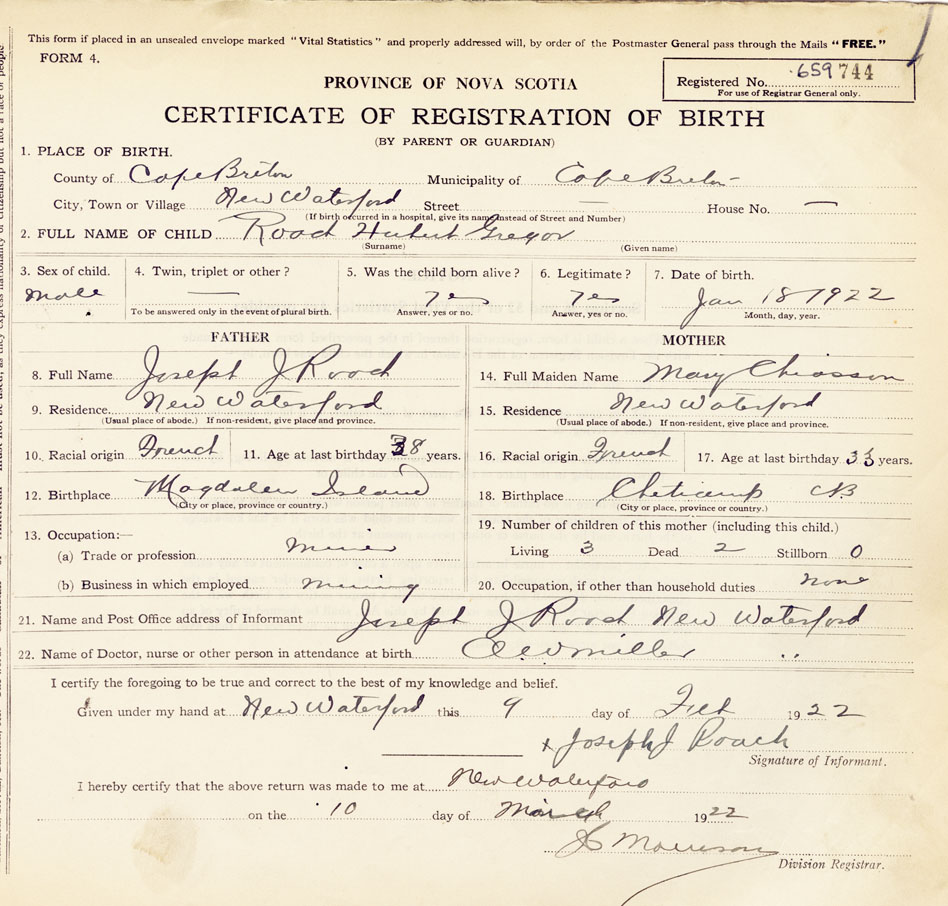 This form if placed in an unsealed envelope marked "Vital Statistics" and properly addressed will, by order of the Postmaster General pass through the Mails "FREE."
FORM 4.
PROVINCE OF NOVA SCOTIA
Registered No. 659744
For use of Registrar General only.
CERTIFICATE OF REGISTRATION OF BIRTH
(BY PARENT OR GUARDIAN)
1. PLACE OF BIRTH.
County of Cape Breton Municipality of Cape Breton
City, Town or Village New Waterford Street — House No. —
(If birth occurred in a hospital, give its name instead of Street and Number)
2. FULL NAME OF CHILD Roach Hubert Gregor
(Surname) (Given name)
3. Sex of child. 4. Twin, triplet or other? 5. Was the child born alive? 6. Legitimate? 7. Date of birth.
male — yes yes Jan 18 1922
To be answered only in the event of plural birth. Answer, yes or no. Answer, yes or no. Month, day, year.
FATHER MOTHER
8. Full Name Joseph J Roach 14. Full Maiden Name Mary Chiasson
9. Residence New Waterford 15. Residence New Waterford
(Usual place of abode.) If non-resident, give place and province. (Usual place of abode.) If non-resident, give place and province.
10. Racial origin French 11. Age at last birthday 38 years. 16. Racial origin French 17. Age at last birthday 33 years.
12. Birthplace Magdalen Island 18. Birthplace Cheticamp CB
(City or place, province or country.) (City or place, province or country.)
13. Occupation:— 19. Number of children of this mother (including this child.)
(a) Trade or profession miner Living 3 Dead 2 Stillborn 0
(b) Business in which employed mining 20. Occupation, if other than household duties none
21. Name and Post Office address of Informant Joseph J Roach New Waterford
22. Name of Doctor, nurse or other person in attendance at birth miller
I certify the foregoing to be true and correct to the best of my knowledge and belief.
Given under my hand at New Waterford this 9 day of Feb 1922
x Joseph J Roach
Signature of Informant.
I hereby certify that the above return was made to me at New Waterford
on the 10 day of March 1922
Morrison
Division Registrar.